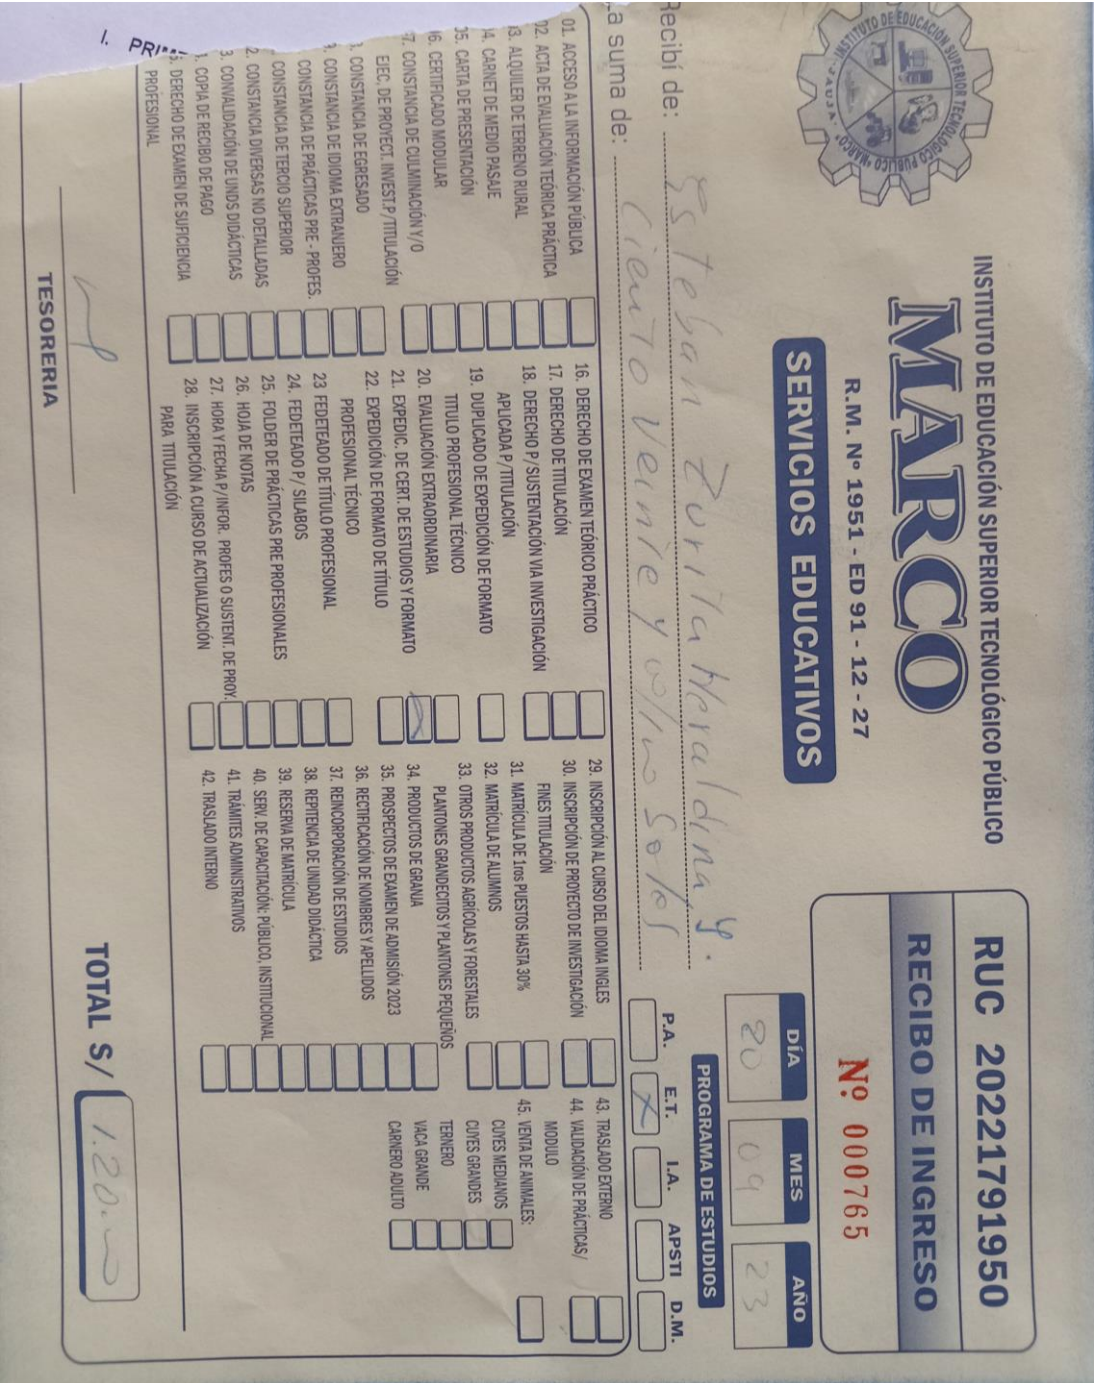 INSTITUTO DE EDUCACIÓN SUPERIOR TECNOLÓGICO PÚBLICO
INSTITUTO DE EDUCACIÓN SUPERIOR TECNOLÓGICO PÚBLICO
MARCO
R.M. Nº 1951 - ED 91 - 12 - 27
SERVICIOS EDUCATIVOS
RUC 20221791950
RECIBO DE INGRESO
Nº 000765
DÍA MES AÑO
20 09 23
Recibí de: Esteban Zorita Heraldina, Y.
La suma de: Ciento Veinte y Soles
PROGRAMA DE ESTUDIOS
P.A. E.T. I.A. APSTI D.M.
X
01. ACCESO A LA INFORMACIÓN PÚBLICA
02. ACTA DE EVALUACIÓN TEÓRICA PRÁCTICA
03. ALQUILER DE TERRENO RURAL
04. CARNET DE MEDIO PASAJE
05. CARTA DE PRESENTACIÓN
06. CERTIFICADO MODULAR
07. CONSTANCIA DE CULMINACIÓN Y/O
EJEC. DE PROYECT. INVEST.P/TITULACIÓN
CONSTANCIA DE EGRESADO
CONSTANCIA DE IDIOMA EXTRANJERO
CONSTANCIA DE PRÁCTICAS PRE - PROFES.
CONSTANCIA DE TERCIO SUPERIOR
2. CONSTANCIA DIVERSAS NO DETALLADAS
3. CONVALIDACIÓN DE UNDS DIDÁCTICAS
COPIA DE RECIBO DE PAGO
5. DERECHO DE EXAMEN DE SUFICIENCIA
PROFESIONAL
16. DERECHO DE EXAMEN TEÓRICO PRÁCTICO
17. DERECHO DE TITULACIÓN
18. DERECHO P/ SUSTENTACIÓN VIA INVESTIGACIÓN
APLICADA P/TITULACIÓN
19. DUPLICADO DE EXPEDICIÓN DE FORMATO
TITULO PROFESIONAL TÉCNICO
20. EVALUACIÓN EXTRAORDINARIA
21. EXPEDIC. DE CERT. DE ESTUDIOS Y FORMATO X
22. EXPEDICIÓN DE FORMATO DE TÍTULO
PROFESIONAL TÉCNICO
23 FEDETEADO DE TÍTULO PROFESIONAL
24. FEDETEADO P/ SILABOS
25. FOLDER DE PRÁCTICAS PRE PROFESIONALES
26. HOJA DE NOTAS
27. HORA Y FECHA P/INFOR. PROFES O SUSTENT. DE PROY.
28. INSCRIPCIÓN A CURSO DE ACTUALIZACIÓN
PARA TITULACIÓN
29. INSCRIPCIÓN AL CURSO DEL IDIOMA INGLES
30. INSCRIPCIÓN DE PROYECTO DE INVESTIGACIÓN
FINES TITULACIÓN
31. MATRÍCULA DE 1ros PUESTOS HASTA 30%
32. MATRÍCULA DE ALUMNOS
33. OTROS PRODUCTOS AGRÍCOLAS Y FORESTALES
PLANTONES GRANDECITOS Y PLANTONES PEQUEÑOS
34. PRODUCTOS DE GRANJA
35. PROSPECTOS DE EXAMEN DE ADMISIÓN 2023
36. RECTIFICACIÓN DE NOMBRES Y APELLIDOS
37. REINCORPORACIÓN DE ESTUDIOS
38. REPITENCIA DE UNIDAD DIDÁCTICA
39. RESERVA DE MATRÍCULA
40. SERV. DE CAPACITACIÓN: PÚBLICO, INSTITUCIONAL
41. TRÁMITES ADMINISTRATIVOS
42. TRASLADO INTERNO
43. TRASLADO EXTERNO
44. VALIDACIÓN DE PRÁCTICAS/
MODULO
45. VENTA DE ANIMALES:
CUYES MEDIANOS
CUYES GRANDES
TERNERO
VACA GRANDE
CARNERO ADULTO
TESORERIA
TOTAL S/ 120.00
I.